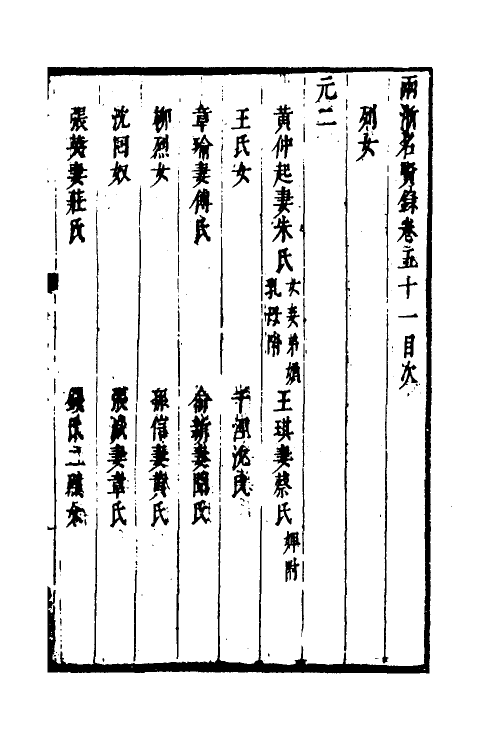 兩浙名賢錄卷五十一目次
列女
元二
黃仲起妻朱氏 女妾弟婦乳母附 王琪妻蔡氏 婢附
王氏女 沈氏
章瑜妻傅氏 俞新妻聞氏
柳烈女 孫信妻
沈囘奴 張 妻韋氏
張 妻莊氏 氏二烈女